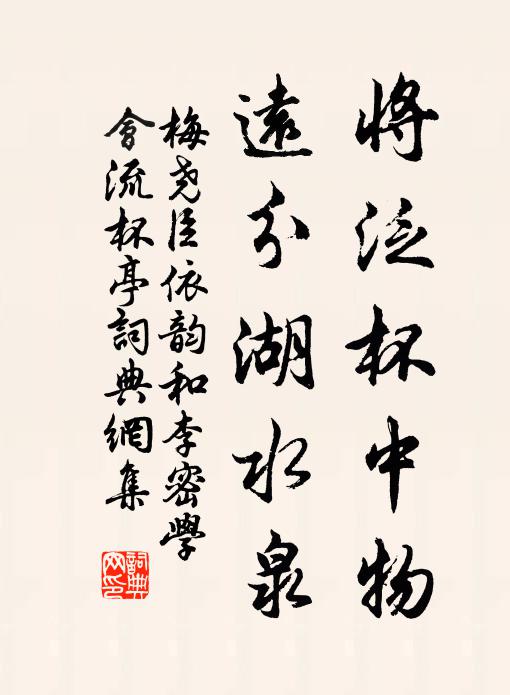 將泛杯中物
遠分湖水泉
梅堯臣依韵和李密學
會流杯亭詞典網集
詞典
网印